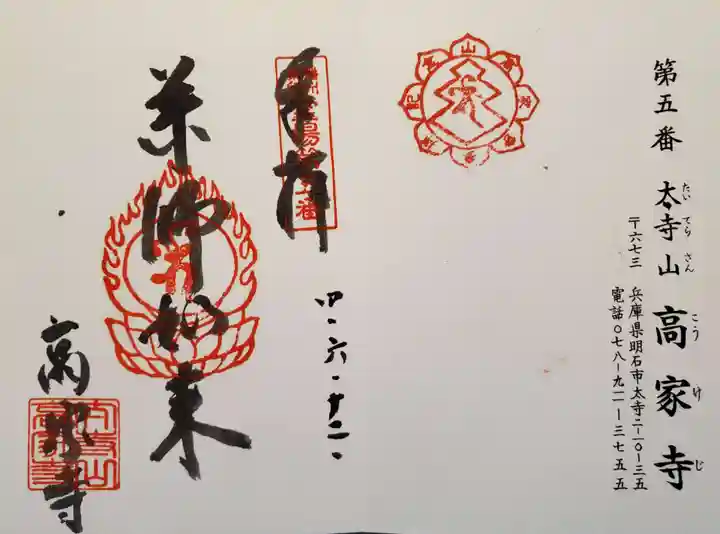 第五番 太寺山 高家寺
たいてらさん こうけじ
〒六七三 兵庫県明石市太寺二ー一〇ー三五
電話〇七八ー九一一ー三七五五
奉拝
四・六・十二・
薬師如来
高家寺